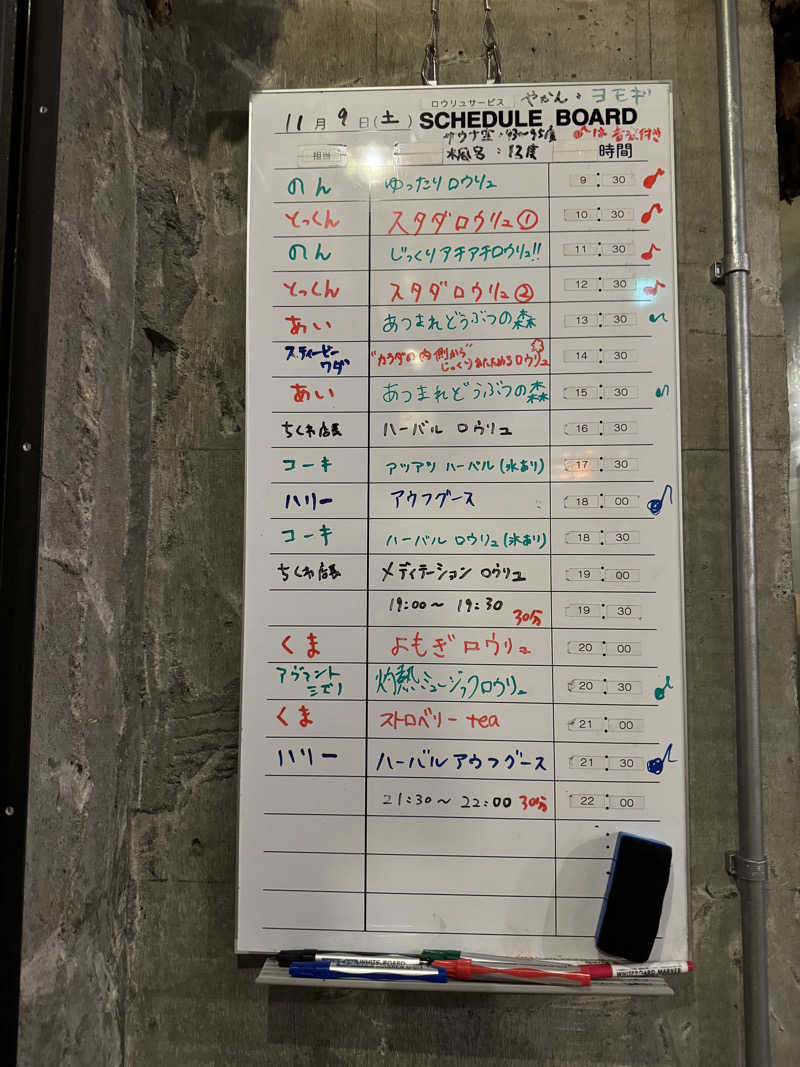 ロウリュサービス やかん:ヨモギ
11月9日(土) SCHEDULE BOARD
サウナ室:93〜95度 ♪は音楽付き
水風呂:13度
担当 時間
のん ゆったりロウリュ 9:30 ♪
とっくん スタダロウリュ① 10:30 ♪
のん じっくりアチアチロウリュ!! 11:30 ♪
とっくん スタダロウリュ② 12:30 ♪
あい あつまれどうぶつの森 13:30 ♪
スティービーワダ "カラダの内側から"じっくりあたためるロウリュ 14:30
あい あつまれどうぶつの森 15:30 ♪
ちくわ店長 ハーバル ロウリュ 16:30
コーキ アツアツ ハーバル(氷あり) 17:30
ハリー アウフグース 18:00 ♪
コーキ ハーバル ロウリュ(氷あり) 18:30
ちくわ店長 メディテーション ロウリュ 19:00
19:00〜19:30 30分 19:30
くま よもぎロウリュ 20:00
アヴァントミズノ 灼熱ミュージックロウリュ 20:30 ♪
くま ストロベリーtea 21:00
ハリー ハーバルアウフグース 21:30 ♪
21:30〜22:00 30分 22:00
WHITE BOARD
WHITEBOARD MARKER